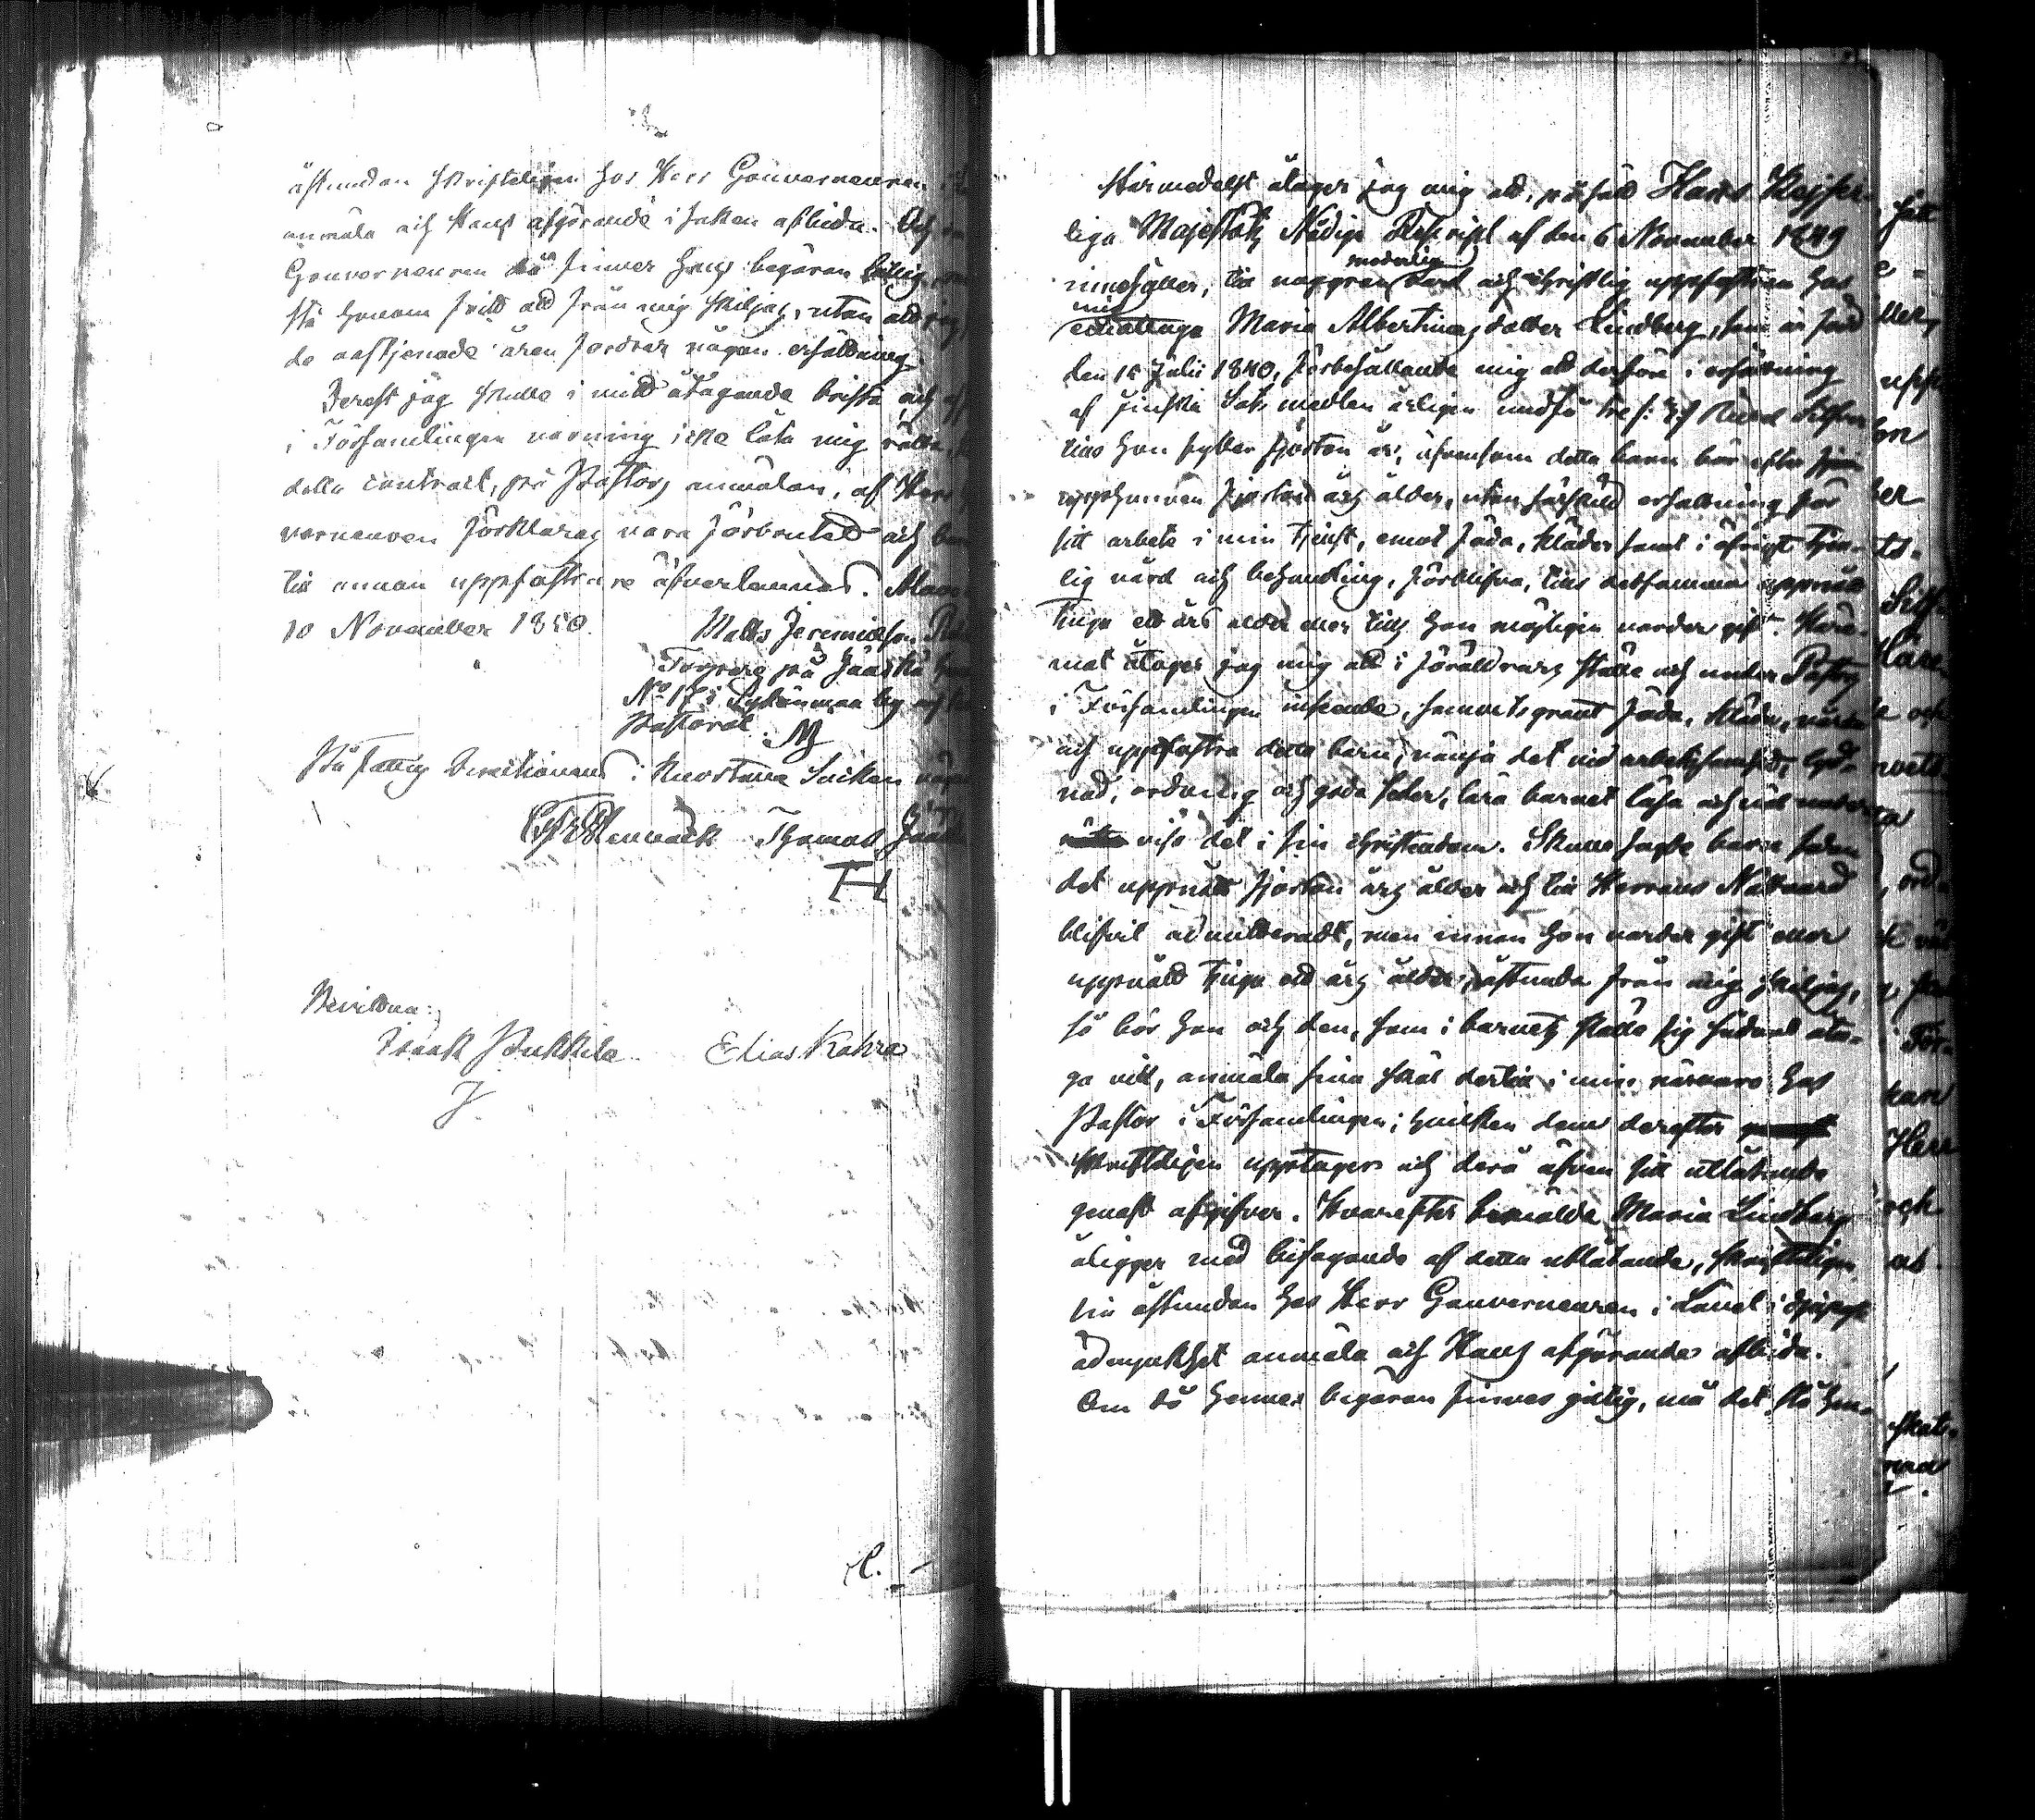 åstundan skrifteligen hos Herr Gouverneuren
anmäla och Hans afgörande i saken afbida. Och
Gouverneuren då finner hans begäran billig,
stå honom fritt att från mig skiljas, utan att jag
de aftjenade åren fordrar någon ersättning.
Derest jag skulle i mitt åtagande brista, och
i Församlingen varning icke låta mig rätta,
detta contract, på Pastors anmälan, af Herr
verneuren förklaras vara förbrutet och
till annan uppfostrare öfverlemnas.
10 November 1850.
Matts Jeremiæson
Torpare på Jaaska
No 17 i by
Pastorat. M
På fattig Directionens i Kuortane Socken
Thomas
H
Bevittna:
Isaak Pukkila Elias Kahra
J
Härmedelst åtager jag mig att, på sätt Hans Kejser-
liga Majestäts Nådiga Rescript af den 6 November 1849
innehåller, till noggran vård och christlig uppfostran hos
moderlig
mig
emottaga Maria Albertina, dotter Lindberg, som är född
den 16 Julii 1840, förbehållande mig att derföre i ersättning
af Finska Stats medlen årligen undfå tre Rubel Silfver
tills hon fyller fjorton år, äfvensom detta barn bör efter
upphunnen fjorton års ålder, utan särskild ersättning för
sitt arbete i min tjenst, emot föda, kläder samt i öfrigt tjen-
lig vård och behandling, förblifva, tills detsamma uppnått
tjugu ett års ålder eller tills hon möjligen varder gift. Häre-
mot åtager jag mig att i föräldrars ställe och under Pastors
i Församlingen inseende, samvetsgrant föda, kläda, vårda
och uppfostra detta barn, vänja det vid arbetsamhet, lyd-
nad, ordning och goda seder, lära barnet läsa och väl under
visa det i sin christendom. Skulle sagde barn sedan
det uppnått fjorton års ålder och till Herrans Nattvard
blifvit admitteradt, men innan hon varder gift eller
uppnått tjugu ett års ålder, åstunda från mig skiljas,
så bör hon och den, som i barnets ställe sig sådant åta-
ga vill, anmäla sina skäl dertill i min närvaro hos
Pastor i Församlingen; hvilken dem derefter
skriftligen upptager och derå äfven sitt utlåtande
genast afgifver. Hvarefter bemälda Maria Lindberg
åligger med bifogande af detta utlåtande, skrifteligen
sin åstundan hos Herr Gouverneuren i Länet i djupaste
ödmjukhet anmäla och Hans afgörande afbida.
Om då hennes begäran finnes giltig, må det stå hen-